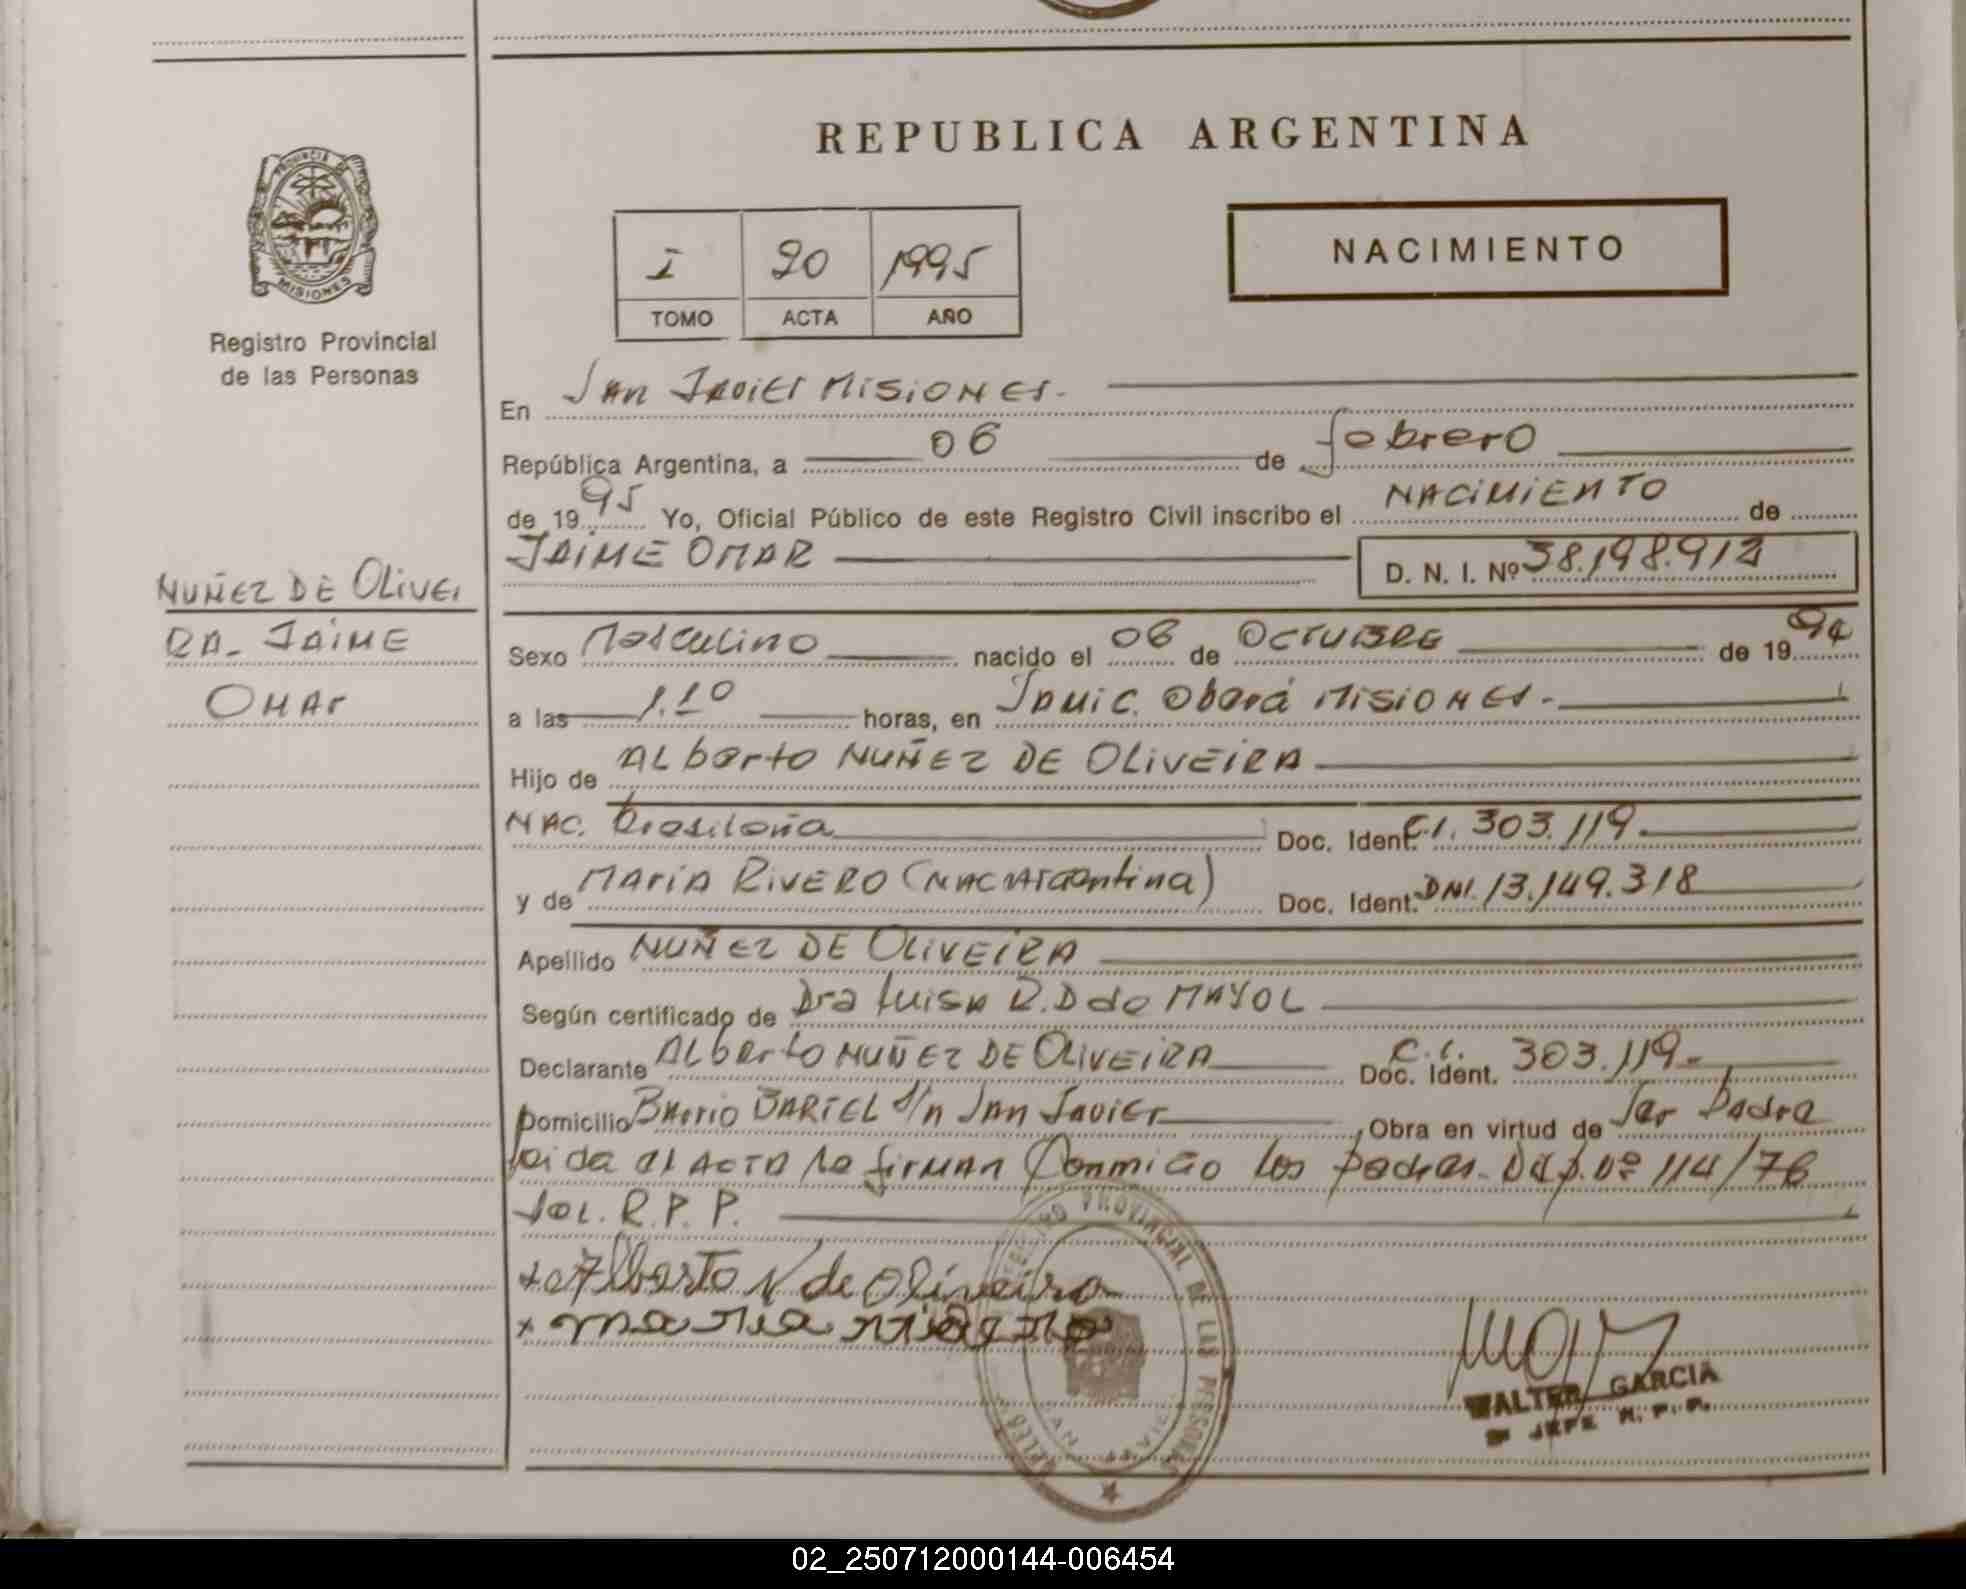 REPUBLICA ARGENTINA
PROVINCIA DE
MISIONES
Registro Provincial
de las Personas
I 90 1995
TOMO ACTA AÑO
NACIMIENTO
En San Javier Misiones.
República Argentina, a 06 de febrero
de 1995 Yo, Oficial Público de este Registro Civil inscribo el NACIMIENTO de
JAIME OMAR D. N. I. Nº 38.198.912
NUÑEZ DE OLIVEI
RA_ JAIME
OMAr
Sexo Masculino nacido el 06 de OCTUBRE de 1994
a las 1.10 horas, en Samic. Oberá Misiones.
Hijo de Alberto NUÑEZ DE OLIVEIRA
NAC. brasileña Doc. Ident. C.I. 303.119.
y de MARIA RIVERO (NAC Argentina) Doc. Ident. DNI. 13.149.318
Apellido NUÑEZ DE OLIVEIRA
Según certificado de Dra Luisa R. D de MAYOL
Declarante Alberto NUÑEZ DE OLIVEIRA C.I. Doc. Ident. 303.119-
Domicilio Barrio BARTEL s/n San Javier Obra en virtud de Ser Padre
leida el ACTA la firman Conmigo los padres. Disp. Nº 114/76
R.P.P.
x Alberto N de Oliveira
x maria rivero
REGISTRO PROVINCIAL DE LAS PERSONAS
SAN JAVIER
WALTER GARCIA
JEFE R. P. P.
02_250712000144-006454